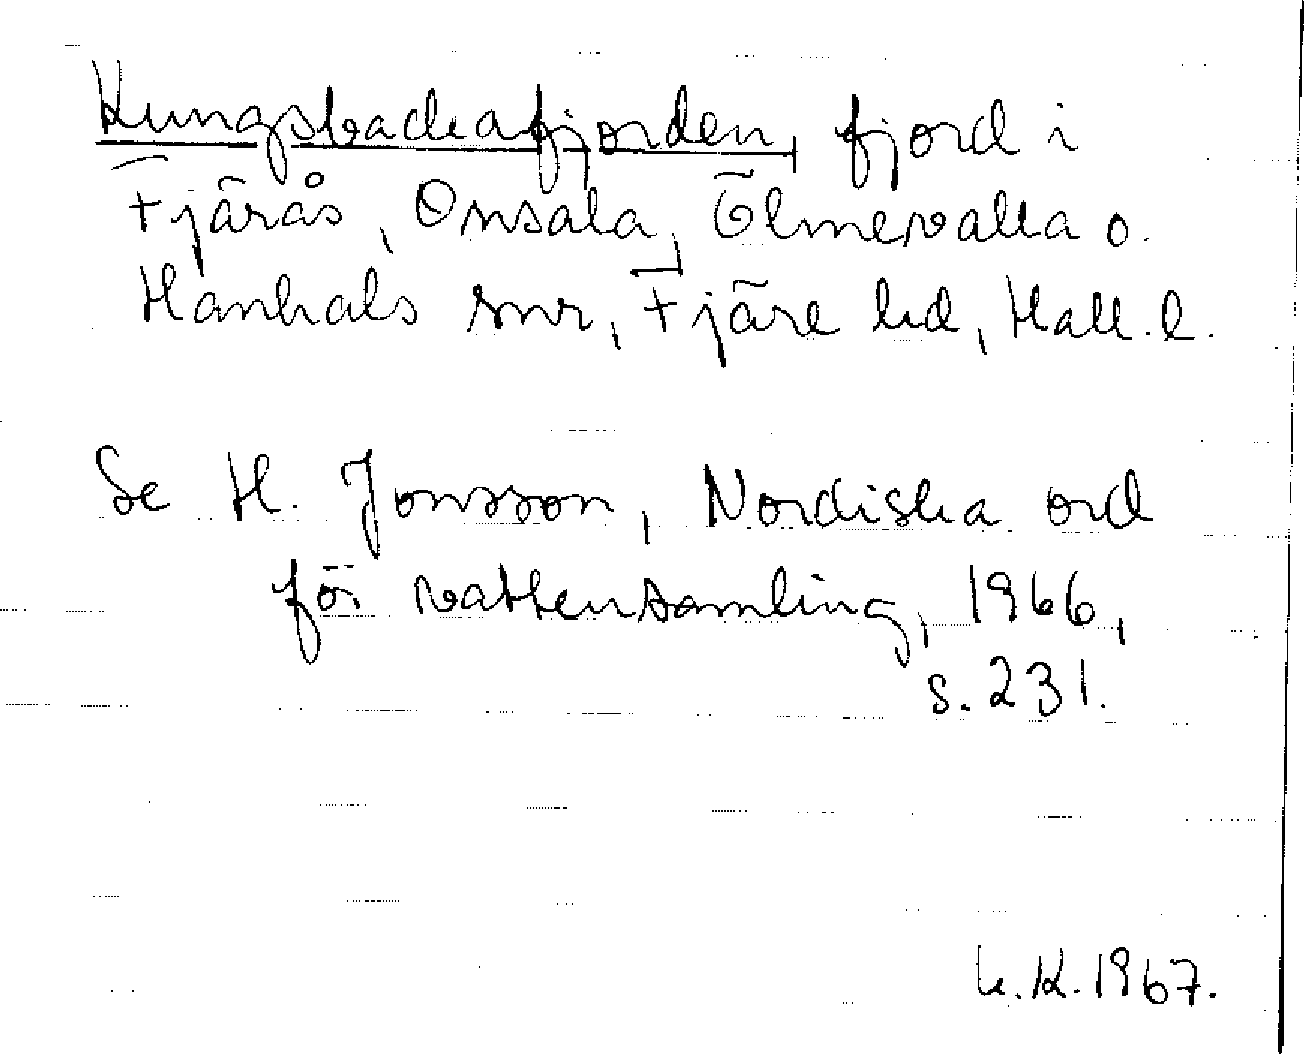 Kungsbackafjorden, fjord i
Fjärås, Onsala, Ölmevalla o.
Hanhals snr, Fjäre hd, Hall. l.
Se H. Jonsson, Nordiska ord
för vattensamling, 1966,
s. 231.
K. 1967.